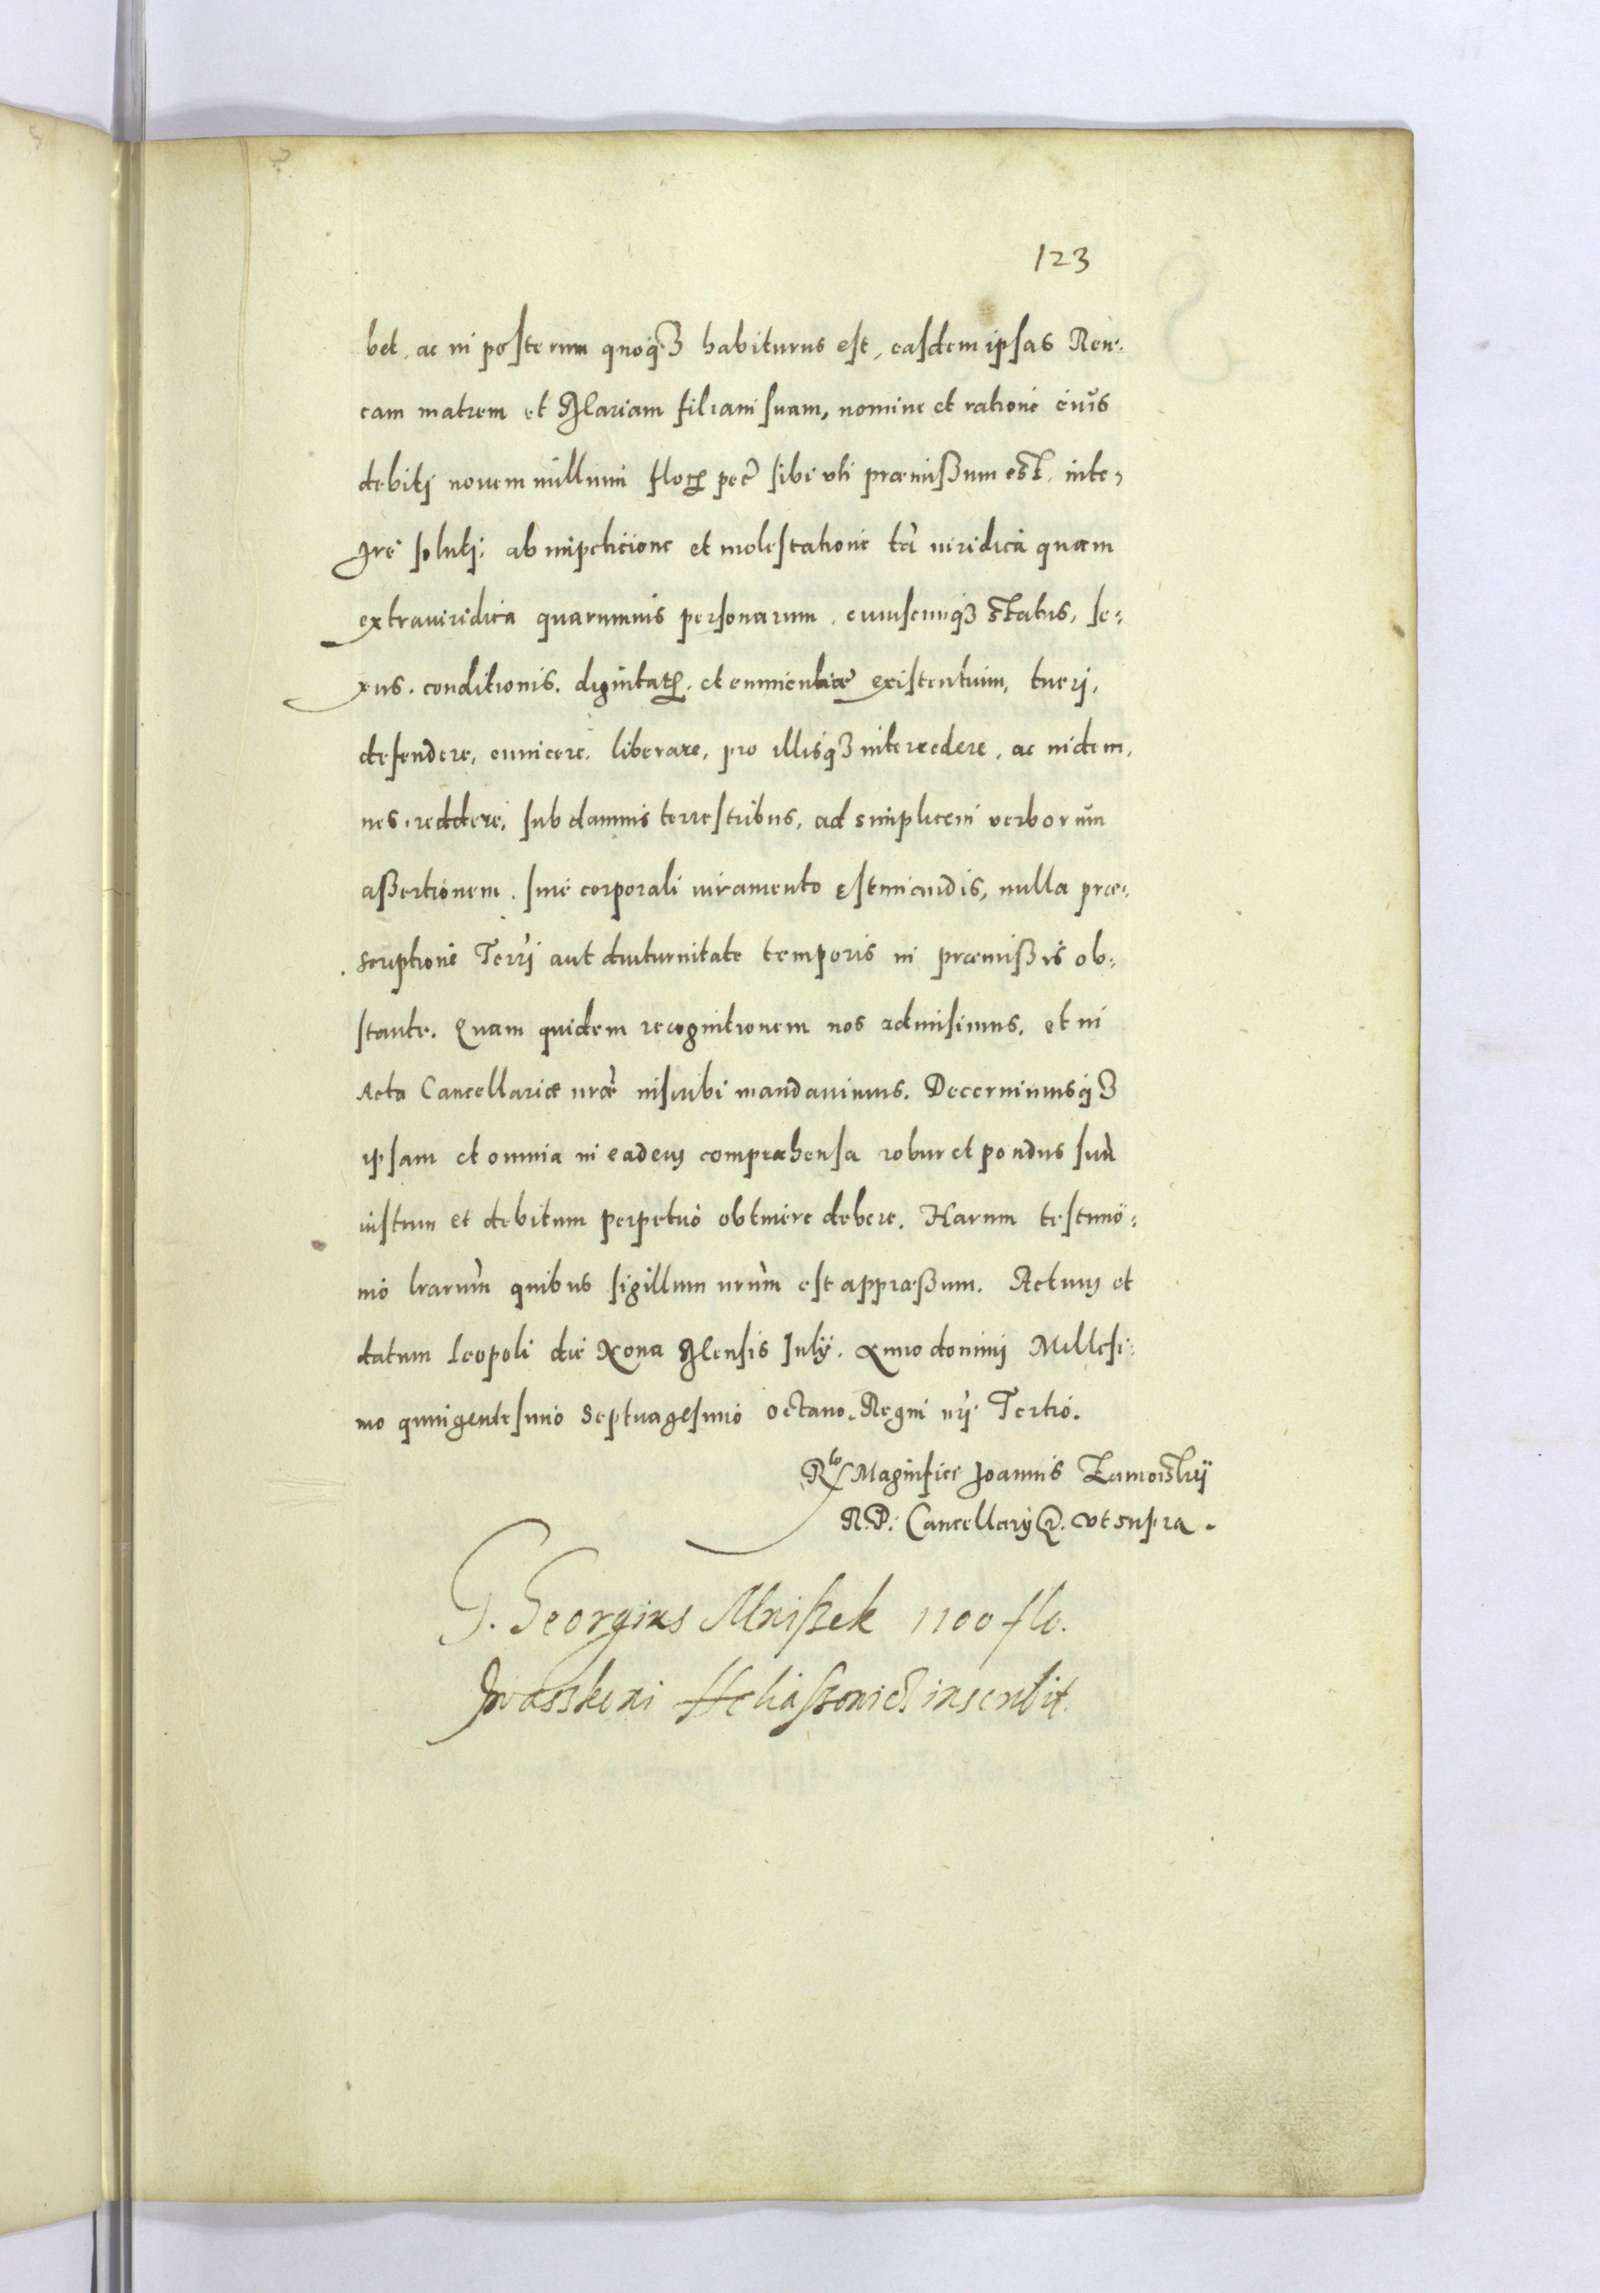 123
bet, ac in posterum quoq3 habiturus est, easdem ipsas Ren:
cam matrem et Mariam filiam suam, nomine et ratione eius
debitj nouem millium floꝝ pec̃ sibi vti præmißum est, inte,
gre solutj: ab impeticione et molestatione tã iuridica quam
extraiuridica quarumuis personarum, cuiuscunq3 status, se:
xus, conditionis, dignitatꝭ, et eminentiæ existentium, tuerj,
defendere, euincere, liberare, pro illisq3 intercedere, ac indem,
nes reddere, sub damnis terrestribus, ad simplicem verborum
aßertionem, sine corporali iuramento estimandis, nulla præ:
scriptione Terr̃i aut diuturnitate temporis in præmißis ob:
stante. Quam quidem recognitionem nos admisimus, et in
Acta Cancellariæ nr̃æ inscribi mandauimus. Decernimusq3
ipsam et omnia in eadem compræhensa robur et pondus suũ
iustum et debitum perpetuò obtinere debere. Harum testimo:
nio lr̃arum quibus sigillum nr̃um est appræßum. Actum et
datum Leopoli die Nona Mensis Julÿ. Anno dominj Millesi:
mo quingentesimo Septuagesimo octauo. Regni nr̃j Tertio.
Rlo Magnifici Joannis Zamoiskÿ
R. P. Cancellarÿ &. vt supra.
G. Georgius Mnißek 1100 flo.
Iwasskoni Heliaßowicz inscribit.